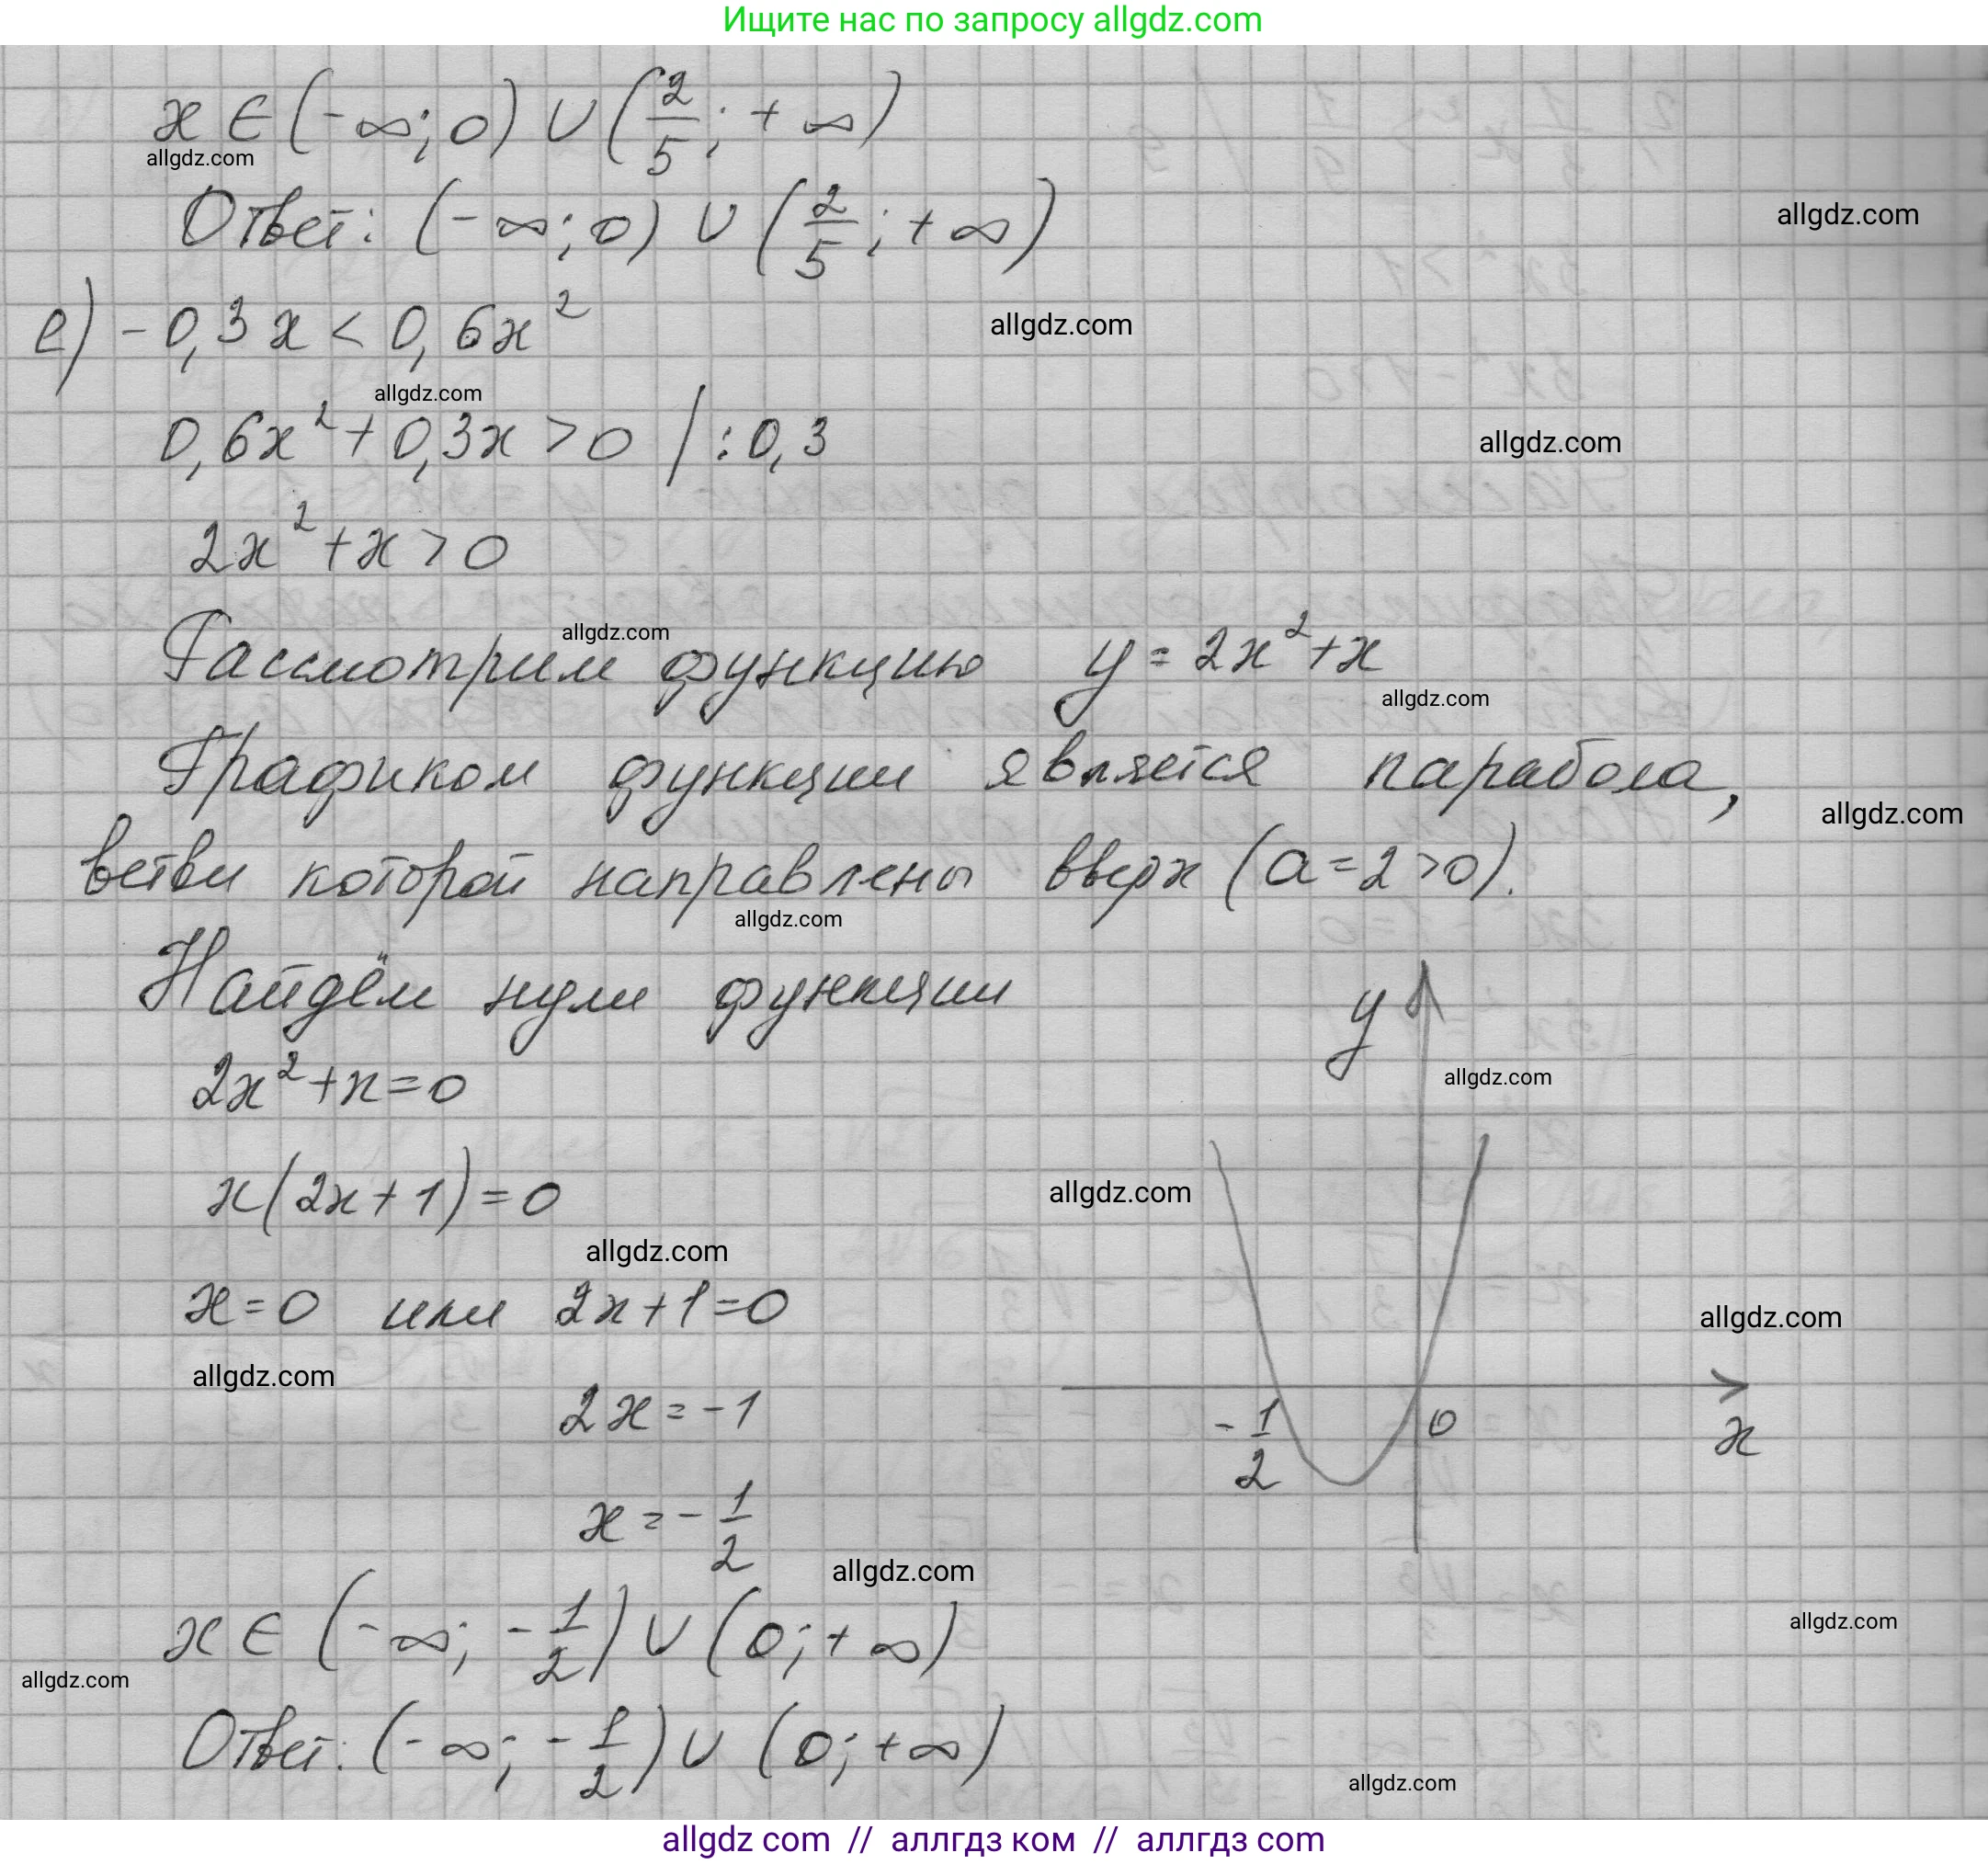 Ищите нас по запросу allgdz.com
x ∈ (-∞; 0) ∪ (2/5; +∞)
allgdz.com
Ответ: (-∞; 0) ∪ (2/5; +∞)
allgdz.com
е) -0,3x < 0,6x²
allgdz.com
allgdz.com
0,6x² + 0,3x > 0 | : 0,3
allgdz.com
2x² + x > 0
allgdz.com
Рассмотрим функцию y = 2x² + x
allgdz.com
Графиком функции является парабола,
allgdz.com
ветви которой направлены вверх (a = 2 > 0).
allgdz.com
Найдём нули функции
y
2x² + x = 0
allgdz.com
x(2x + 1) = 0
allgdz.com
allgdz.com
x = 0 или 2x + 1 = 0
allgdz.com
allgdz.com
2x = -1
-1/2
0
x
x = -1/2
allgdz.com
x ∈ (-∞; -1/2) ∪ (0; +∞)
allgdz.com
allgdz.com
Ответ: (-∞; -1/2) ∪ (0; +∞)
allgdz.com
allgdz com // аллгдз ком // аллгдз com